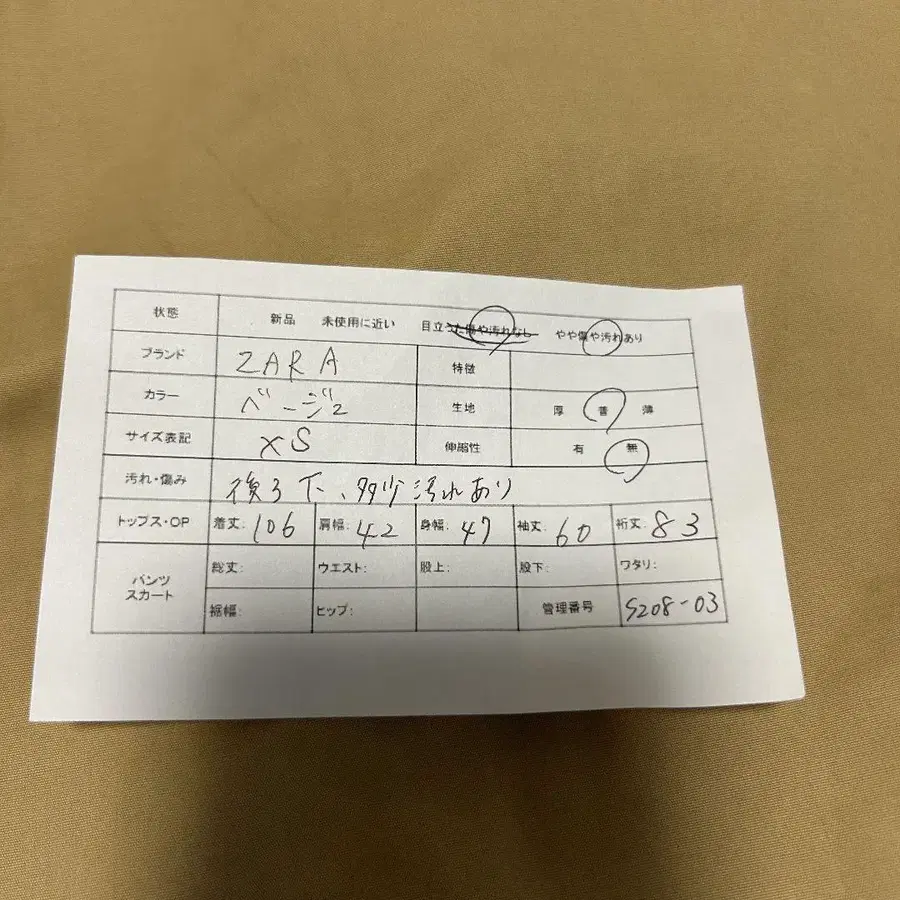 状態 新品 未使用に近い 目立った傷や汚れなし やや傷や汚れあり
ブランド ZARA 特徴
カラー ベージュ 生地 厚 普 薄
サイズ表記 XS 伸縮性 有 無
汚れ・傷み 後ろ下、多少汚れあり
トップス・OP 着丈: 106 肩幅: 42 身幅: 47 袖丈: 60 裄丈: 83
パンツ スカート 総丈: ウエスト: 股上: 股下: ワタリ:
裾幅: ヒップ: 管理番号 S208-03